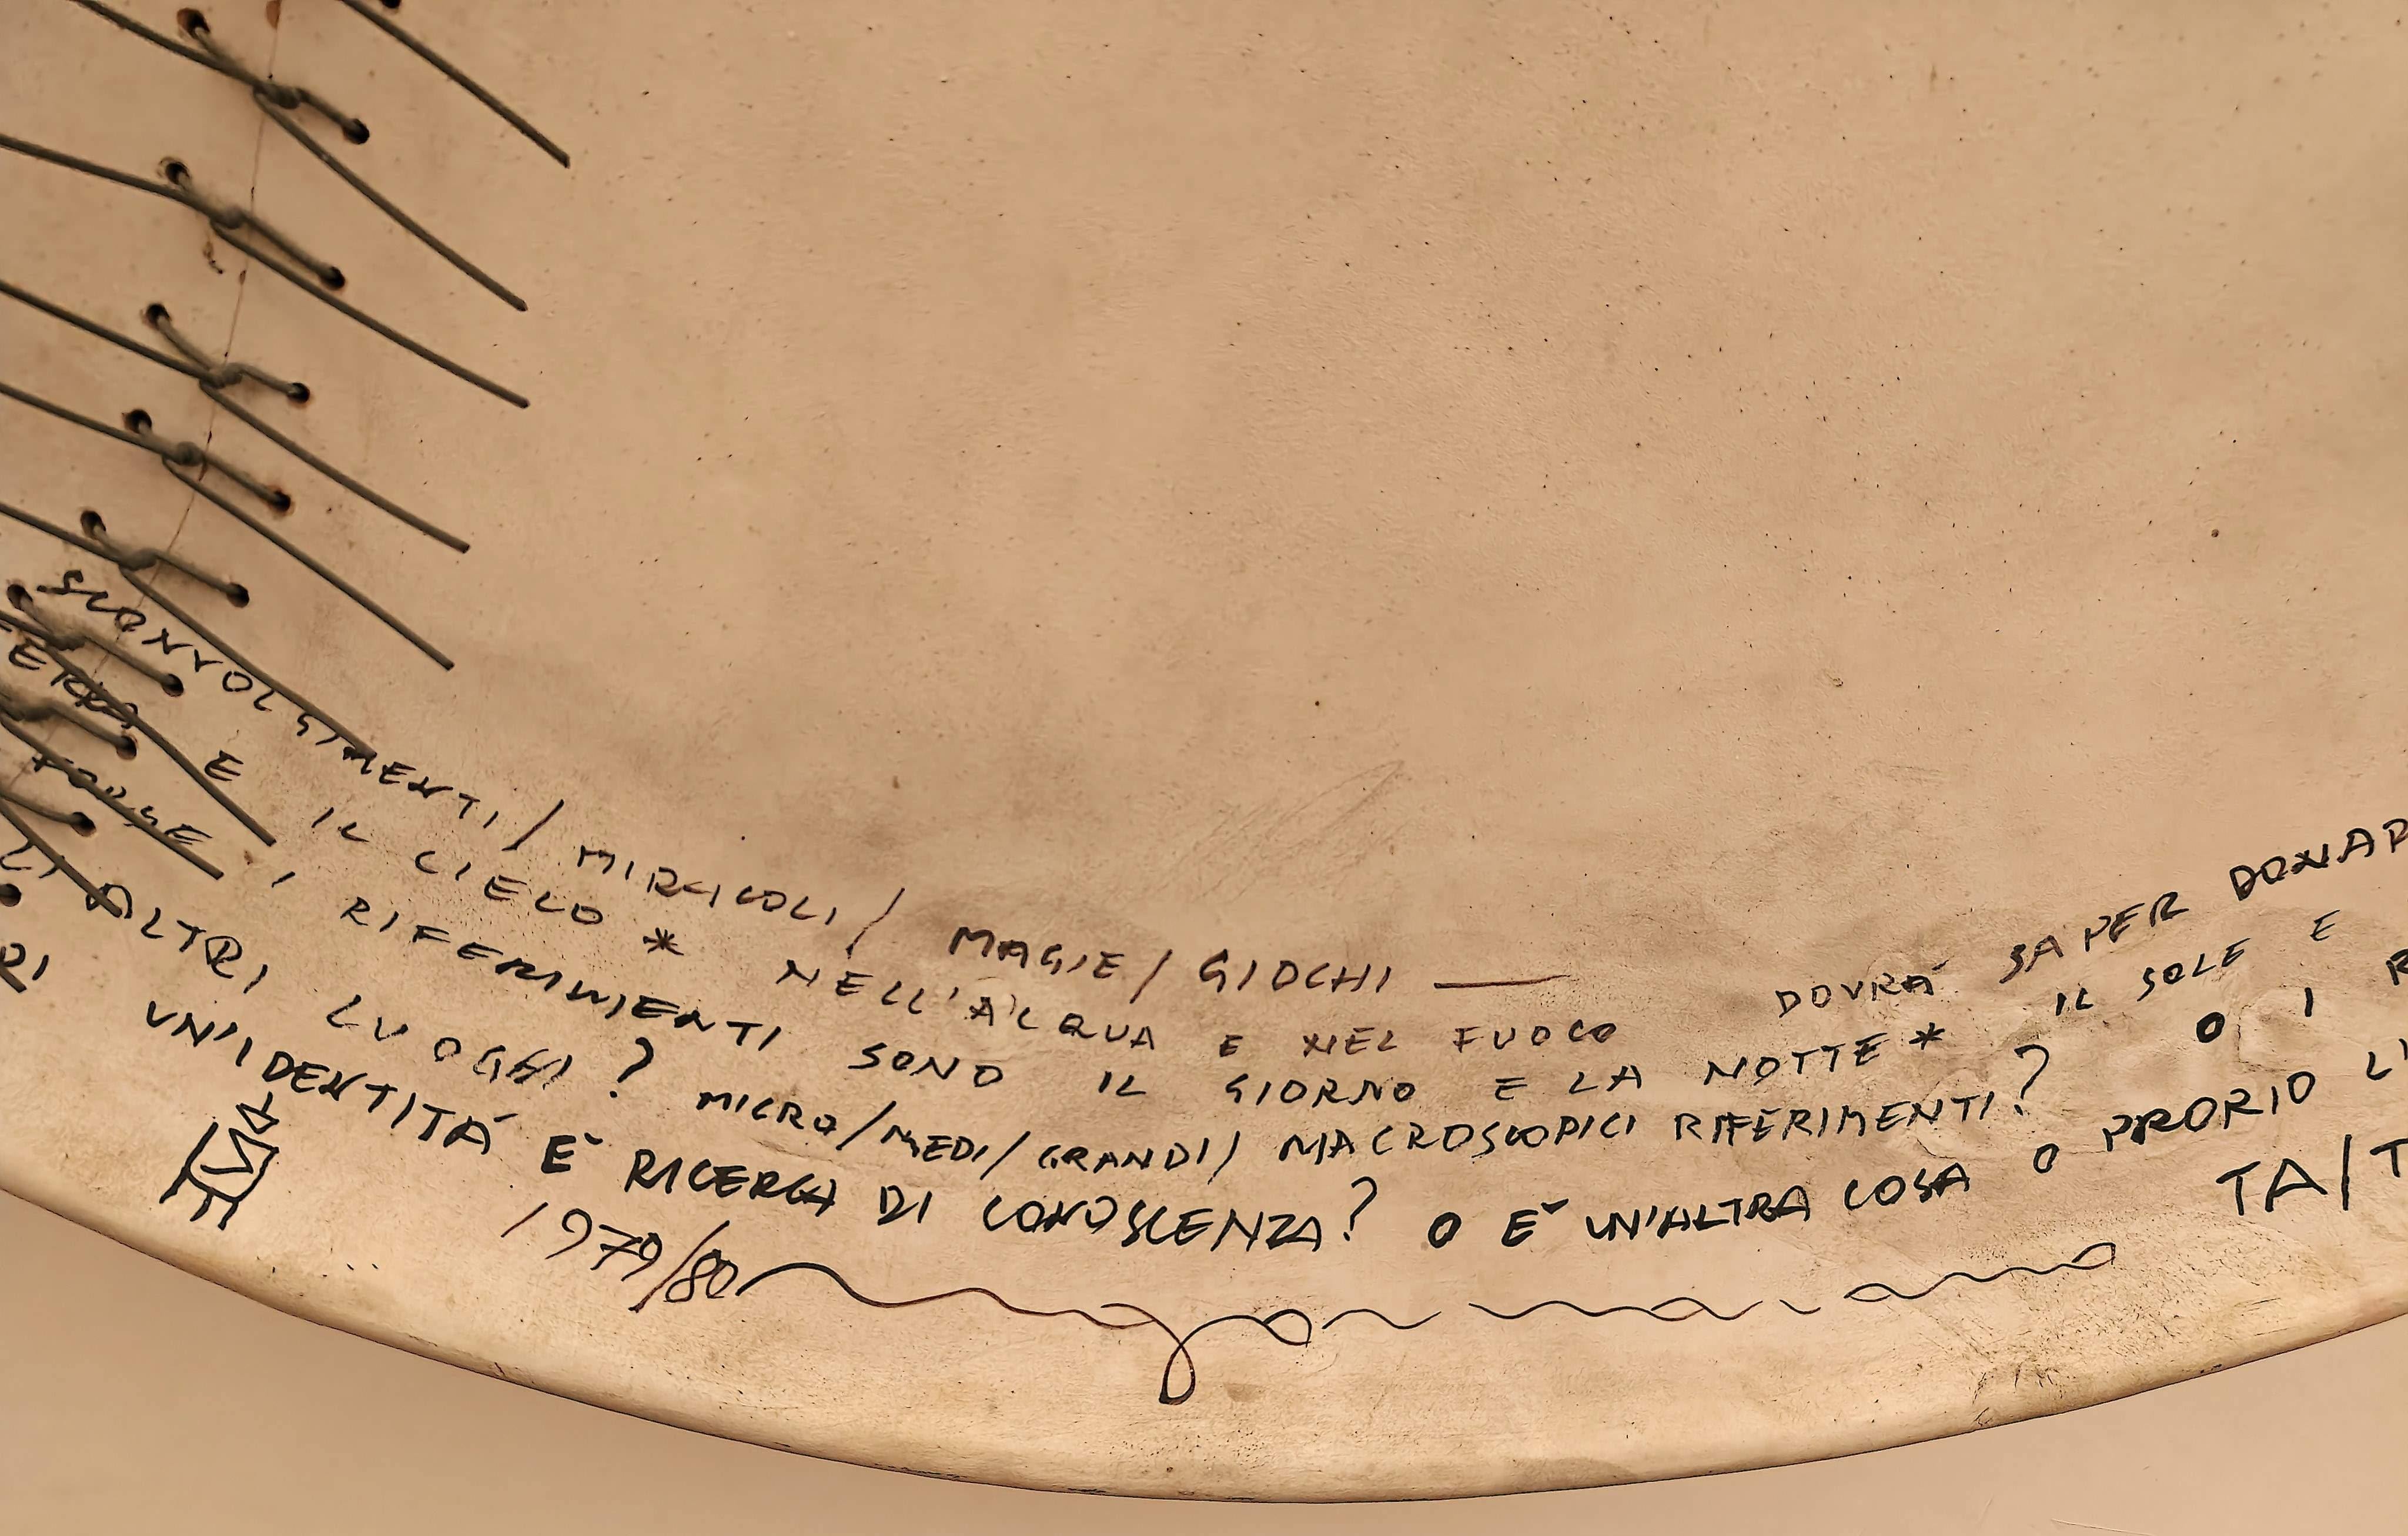 SCONVOLGIMENTI / MIRACOLI / MAGIE / GIOCHI —
TERRA E IL CIELO * NELL'ACQUA E NEL FUOCO DOVRÀ SAPER DONAR
FORSE I RIFERIMENTI SONO IL GIORNO E LA NOTTE * IL SOLE E
LI ALTRI LUOGHI ? MICRO/MEDI/GRANDI/ MACROSCOPICI RIFERIMENTI? O I R
RI UN'IDENTITÀ È RICERCA DI CONOSCENZA? O È UN'ALTRA COSA O PRORIO L'
1979/80 TA/T